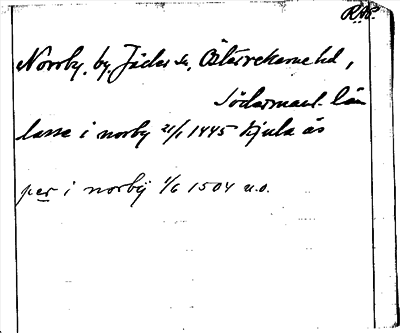 RAP.
Norrby, by, Jäders sn, Österrekarne hd,
Södermanl. län
lasse i norby 21/1 1445 Kjula ås
per i norbÿ 1/6 1504 u.o.